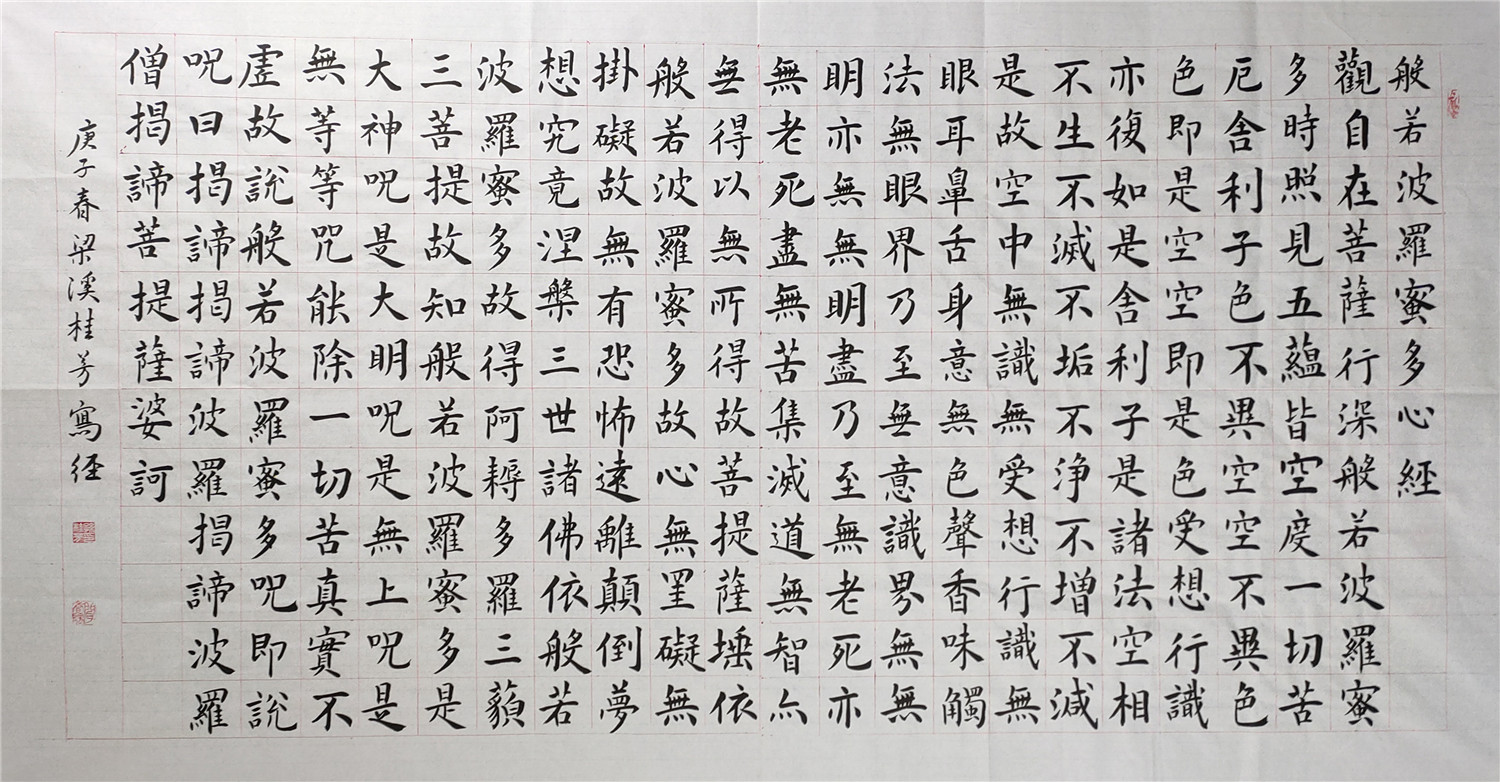 般若波羅蜜多心經
觀自在菩薩行深般若波羅蜜
多時照見五蘊皆空度一切苦
厄舍利子色不異空空不異色
色即是空空即是色受想行識
亦復如是舍利子是諸法空相
不生不滅不垢不浄不增不減
是故空中無識無受想行識無
眼耳鼻舌身意無色聲香味觸
法無眼界乃至無意識界無無
明亦無無明盡乃至無老死亦
無老死盡無苦集滅道無智亦
無得以無所得故菩提薩埵依
般若波羅蜜多故心無罣礙無
掛礙故無有恐怖遠離顛倒夢
想究竟涅槃三世諸佛依般若
波羅蜜多故得阿耨多羅三藐
三菩提故知般若波羅蜜多是
大神咒是大明咒是無上咒是
無等等咒能除一切苦真實不
虛故說般若波羅蜜多咒即說
咒曰揭諦揭諦波羅揭諦波羅
僧揭諦菩提薩婆訶
庚子春梁溪桂芳寫經